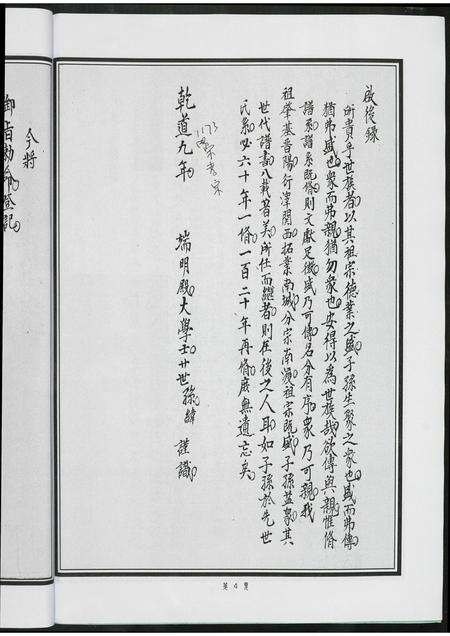 啟後錄
所貴乎世族者以其祖宗德業之盛子孫生聚之衆也盛而弗傳
猶弗盛也衆而弗親猶勿衆也安得以為世族哉欲傳與親惟脩
譜系譜系既脩則文獻足徵盛乃可傳名分有序衆乃可親我
祖肇基晋陽衍澤関西拓業南城分宗南漫祖宗既盛子孫益衆其
世代譜書八載著美所任而繼者則在後之人耳如子孫於先世
氏系必六十年一脩一百二十年再脩庶無遺忘矣
乾道九年
1173
宋孝宗
端明殿大學士廿世孫 謹識
今將
御旨勅命登記
第 4 頁